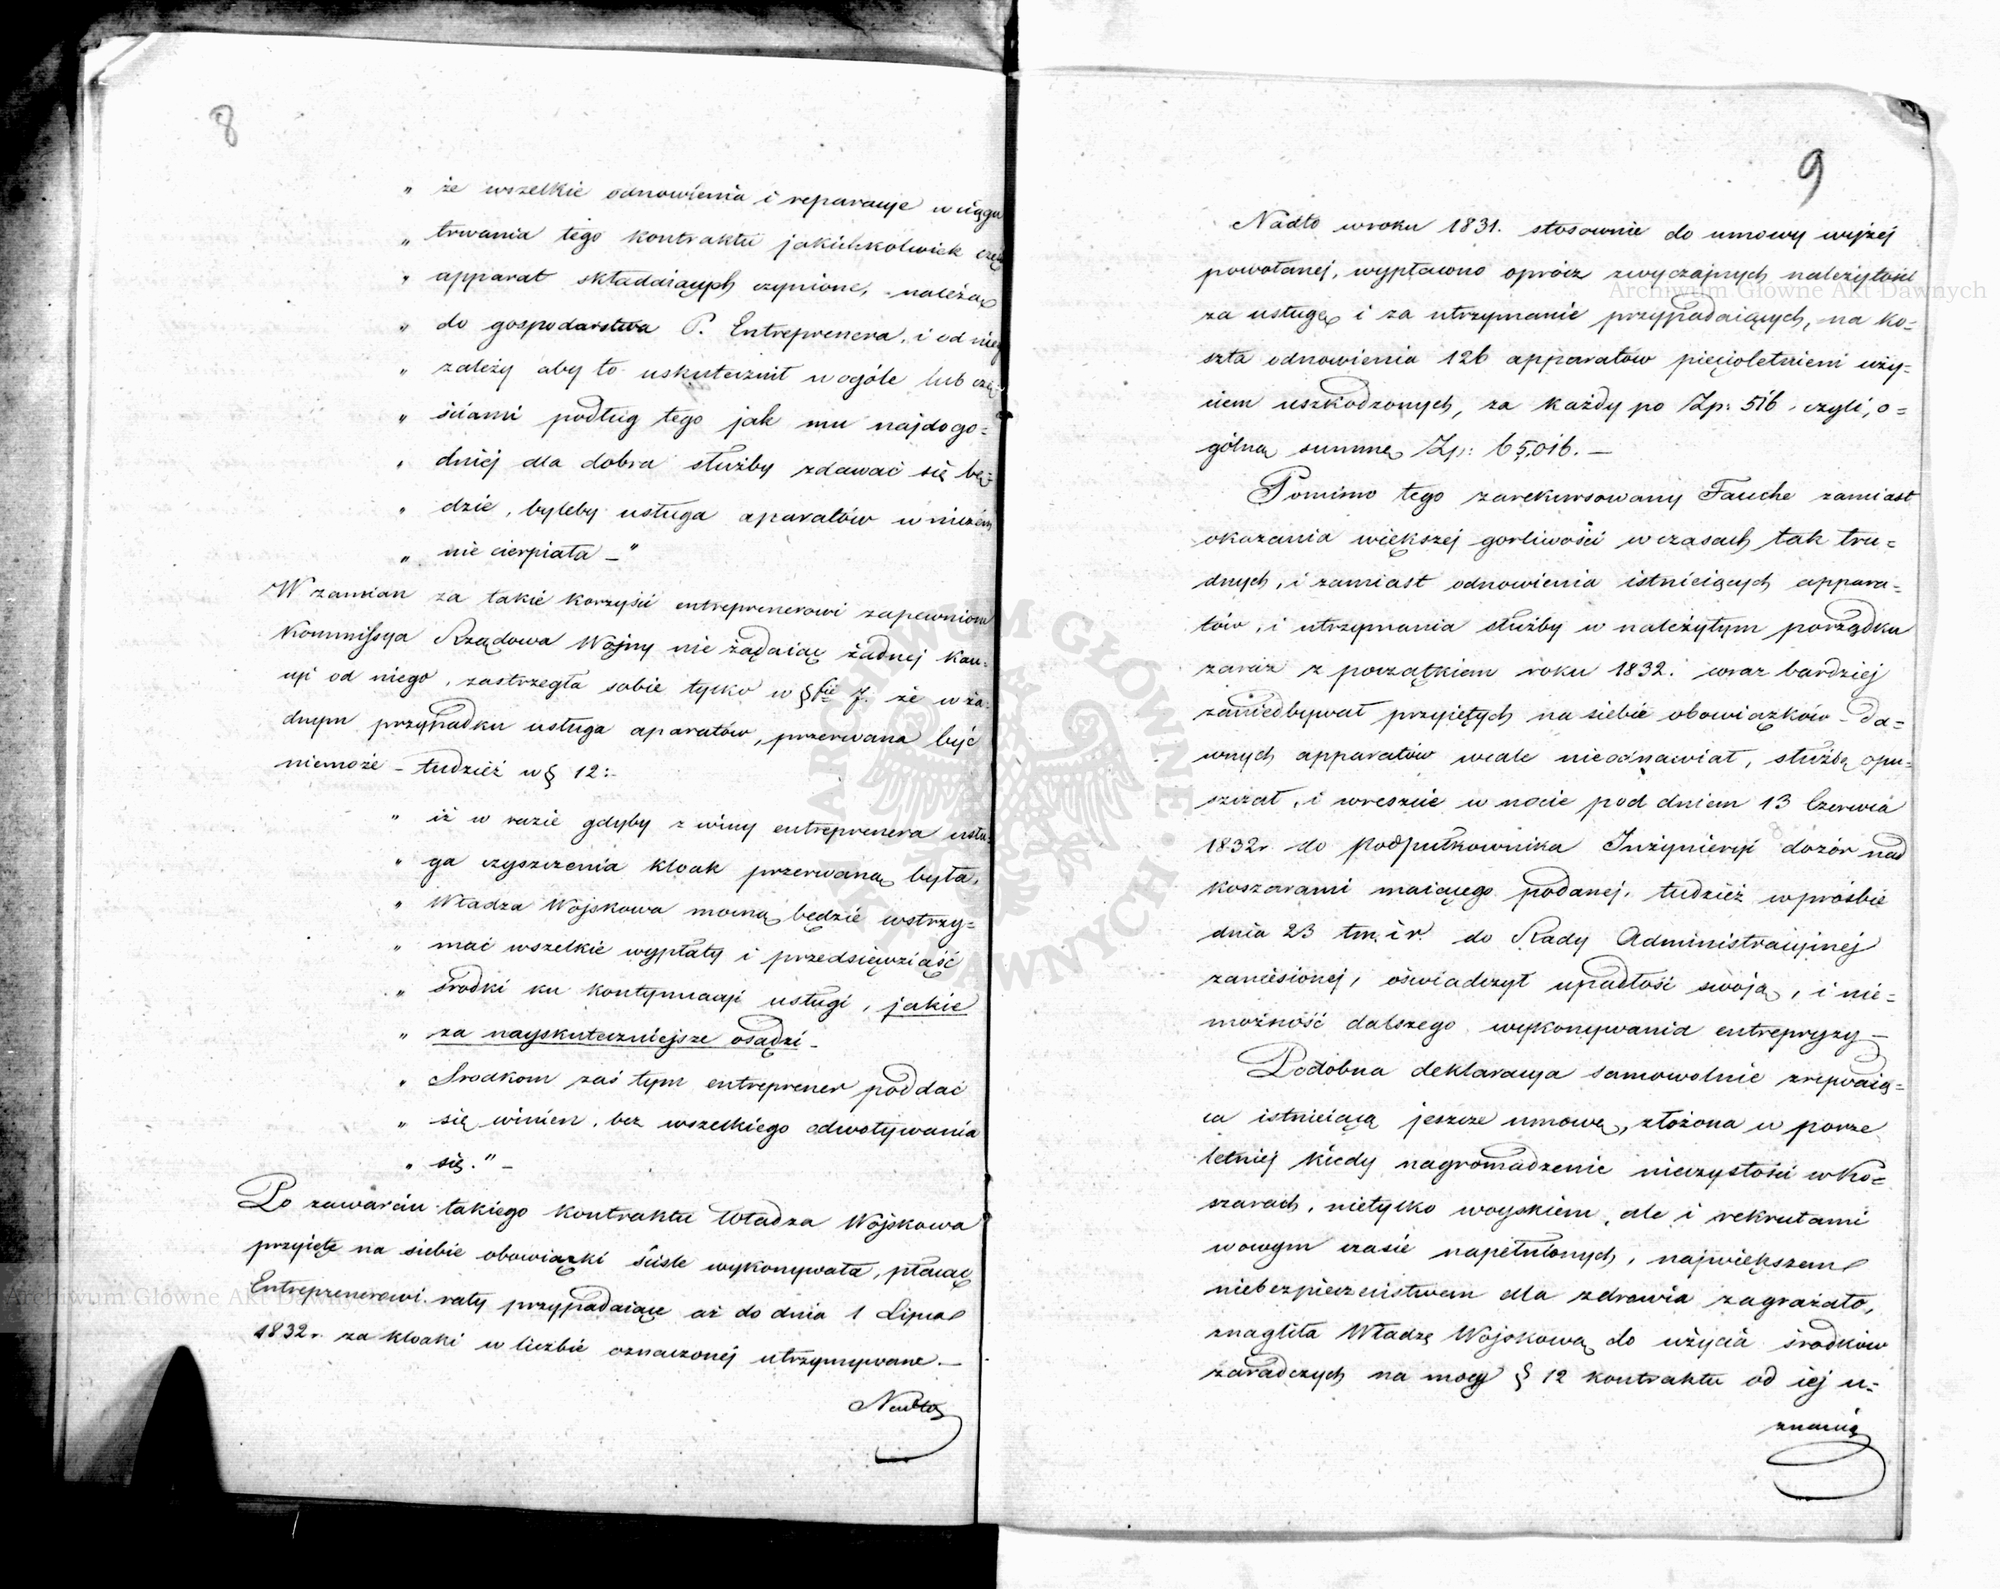 8
" że wszelkie odnowienia i reparacye w ciągu
" trwania tego kontraktu jakichkolwiek
" apparat składaiących czynione, należą
" do gospodarstwa P. Entreprenera, i od niego
" zależy aby to uskutecznił w ogóle lub czę=
" ściami podług tego jak mu najdogo=
" dniej dla dobra służby zdawać się bę=
" dzie, byleby usługa aparatów w niczem
" nie cierpiała –"
W zamian za takie korzyści entreprenerowi zapewnione
Kommissya Rządowa Wojny nie żądaiąc żadnej kau=
cyi od niego, zastrzegła sobie tylko w §fie 7. że w ża=
dnym przypadku usługa aparatów, przerwana być
niemoże – tudzież w § 12:-
" iż w razie gdyby z winy entreprenera usłu=
" ga czyszczenia kloak przerwaną była,
" Władza Wojskowa mocną będzie wstrzy=
" mać wszelkie wypłaty i przedsięwziąść
" środki ku kontynuacyi usługi, jakie
" za nayskuteczniejsze osądzi –
" Srodkom zaś tym entreprener poddać
" się winien, bez wszelkiego odwoływania
" się." –
Po zawarciu takiego kontraktu Władza Wojskowa
przyięte na siebie obowiązki ściśle wykonywała, płacąc
Entreprenerowi raty przypadaiące aż do dnia 1 Lipca
1832r. za kloaki w liczbie oznaczonej utrzymywane. –
Nadto
9
Nadto w roku 1831. stosownie do umowy wyżej
powołanej, wypłacono oprócz zwyczajnych należytości
za usługę i za utrzymanie przypadaiących, na ko=
szta odnowienia 126 apparatów pięcioletniem uży=
ciem uszkodzonych, za każdy po Zp: 516. czyli, o=
gólną summę Zp: 65,016. –
Pomimo tego zarekursowany Fauche zamiast
okazania większej gorliwości w czasach tak tru=
dnych, i zamiast odnowienia istnieiących appara=
tów, i utrzymania służby w należytym porządku
zaraz z początkiem roku 1832. coraz bardziej
zaniedbywał przyiętych na siebie obowiązków – da=
wnych apparatów wcale nieodnawiał, służbę opu=
szczał, i wreszcie w nocie pod dniem 13 Czerwca
1832r. do Podpułkownika Inżynieryi dozór nad
koszarami maiącego podanej, tudzież w prośbie
dnia 23 tm. i r. do Rady Administracyjnej
zaniesionej, oświadczył upadłość swoją, i nie=
możność dalszego wykonywania entrepryzy –
Podobna deklaracya samowolnie zrywaią=
ca istnieiącą jeszcze umowę, złożona w porze
letniej kiedy nagromadzenie nieczystości w Ko=
szarach, nietylko woyskiem, ale i rekrutami
w owym czasie napełnionych, największem
niebezpieczeństwem dla zdrowia zagrażało,
znagliła Władzę Wojskową do użycia środków
zaradczych na mocy § 12 kontraktu od iej u=
znania
Archiwum Główne Akt Dawnych
Archiwum Główne Akt Dawnych
ARCHIWUM GŁÓWNE AKT DAWNYCH